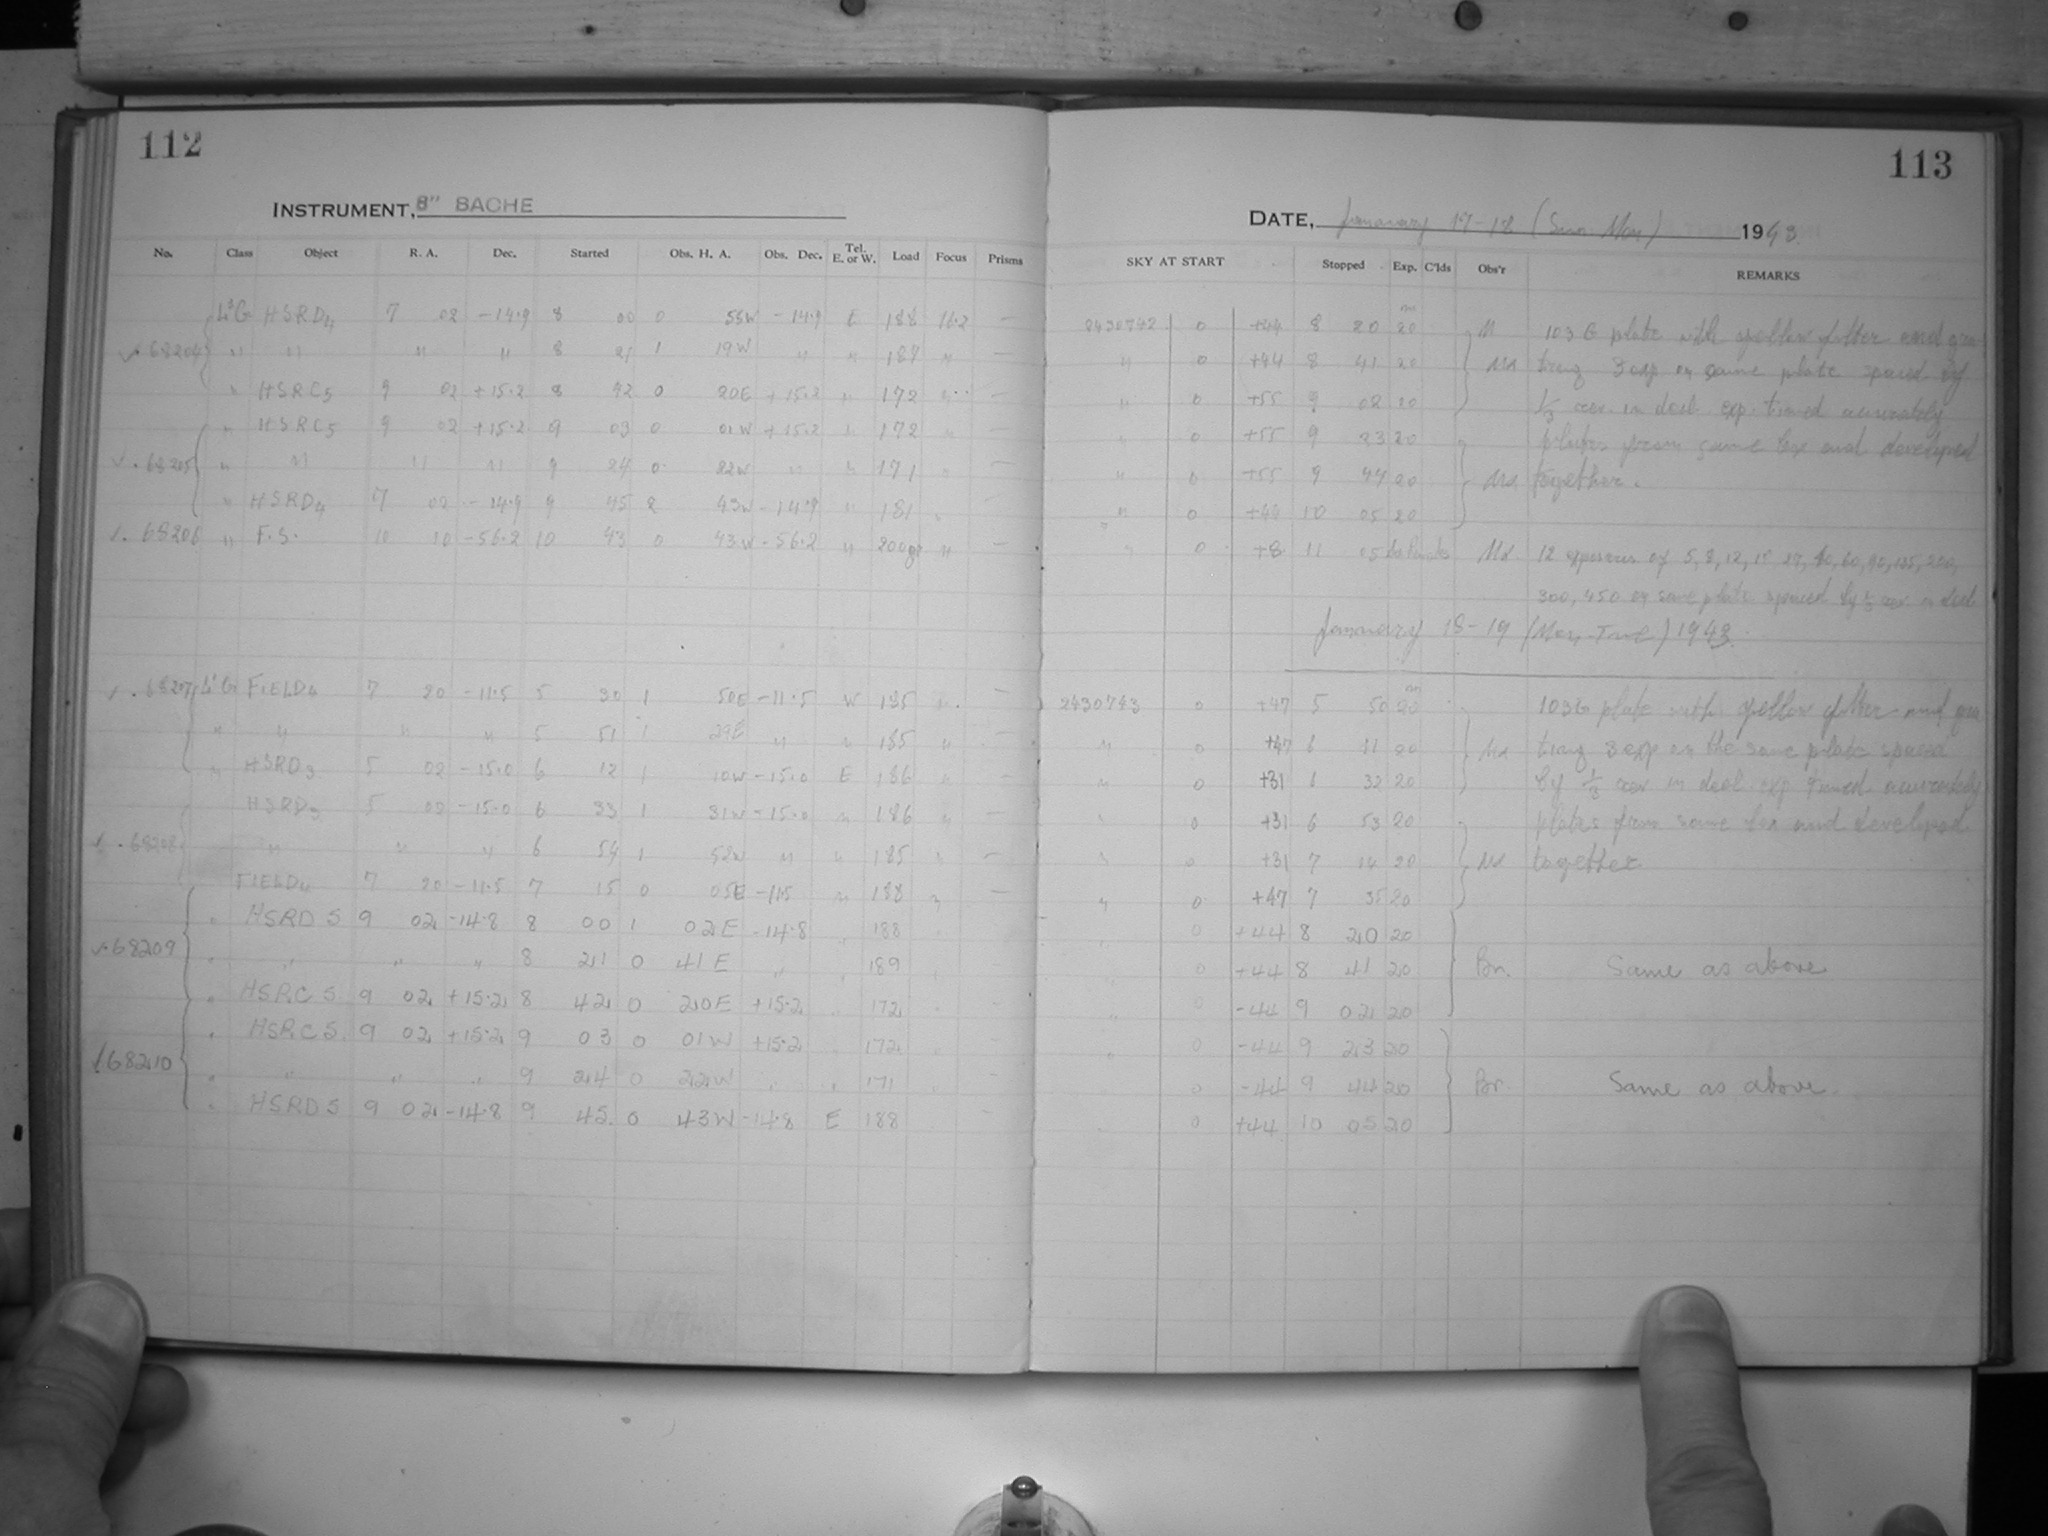 112
INSTRUMENT, 8" BACHE
No. Class Object R. A. Dec. Started Obs. H. A. Obs. Dec. Tel. E. or W. Load Focus Prisms
HSRD4 7 02 -14.9 8 00 0 -14.9 E 188 16.2 —
✓. 68204 " " " " 8 21 1 19W " " "  —
" HSRC5 9 02 +15.2 8 42 0 20E +15.2 " 172 " —
" HSRC5 9 02 +15.2 9 03 0 01W +15.2 " 172 " —
✓. 68205 " " " " 9 24 0 22W " " 171 " —
" HSRD4 7 02 -14.9 9 45 2 43W -14.9 " 181 " —
✓. 68206 " F.S. 10 10 -56.2 10 43 0 43W -56.2 " " —
✓. 68207 FIELD4 7 20 -11.5 5 30 1 50E -11.5 W 185 —
" " " " 5 51 1 29E " " 185 " —
" HSRD3 5 02 -15.0 6 12 1 10W -15.0 E 186 " —
HSRD3 5 02 -15.0 6 33 1 31W -15.0 " 186 " —
✓. 68208 " " " 6 54 1 52W " " 185 " —
FIELD4 7 20 -11.5 7 15 0 05E -11.5 " 188 " —
" HSRD5 9 02 -14.8 8 00 1 02E -14.8 " 188 "
✓.68209 " " " " 8 21 0 41E " " 189 "
" HSRC5 9 02 +15.2 8 42 0 20E +15.2 " 172 "
" HSRC5. 9 02 +15.2 9 03 0 01W +15.2 " 172 "
✓68210 " " " " 9 24 0 22W " " 171 "
" HSRD5 9 02 -14.8 9 45. 0 43W -14.8 E 188 —
113
DATE, January 17-18 (Sun-Mon) 1943.
SKY AT START Stopped Exp. C'lds Obs'r REMARKS
2430742 0 +44 8 20 20 m M 103G plate with yellow filter and gra
" 0 +44 8 41 20 Md ting 3 exp on same plate spaced by
" 0 +55 9 02 20 1/3 rev. in decl. exp. timed accurately
" 0 +55 9 23 20 plates from same box and developed
" 0 +55 9 44 20 Md together.
" 0 +44 10 05 20
" 0 +8 11 05 Md 12 exposures of 5, 8, 12, 27, 40, 60, 90, 135, 200,
300, 450 on same plate spaced by 1/3 rev. in decl
January 18-19 (Mon-Tue) 1943.
2430743 0 +47 5 50 20 m 103G plate with yellow filter and gra
" 0 +47 6 11 20 Md ting 3 exp on the same plate spaced
" 0 +31 6 32 20 by 1/3 rev in decl. exp timed accurately
" 0 +31 6 53 20 plates from same box and developed
" 0 +31 7 14 20 Md together
" 0 +47 7 35 20
" 0 +44 8 20 20
" 0 +44 8 41 20 Br. Same as above
" 0 -44 9 02 20
" 0 -44 9 23 20
0 -44 9 44 20 Br. Same as above.
0 +44 10 05 20